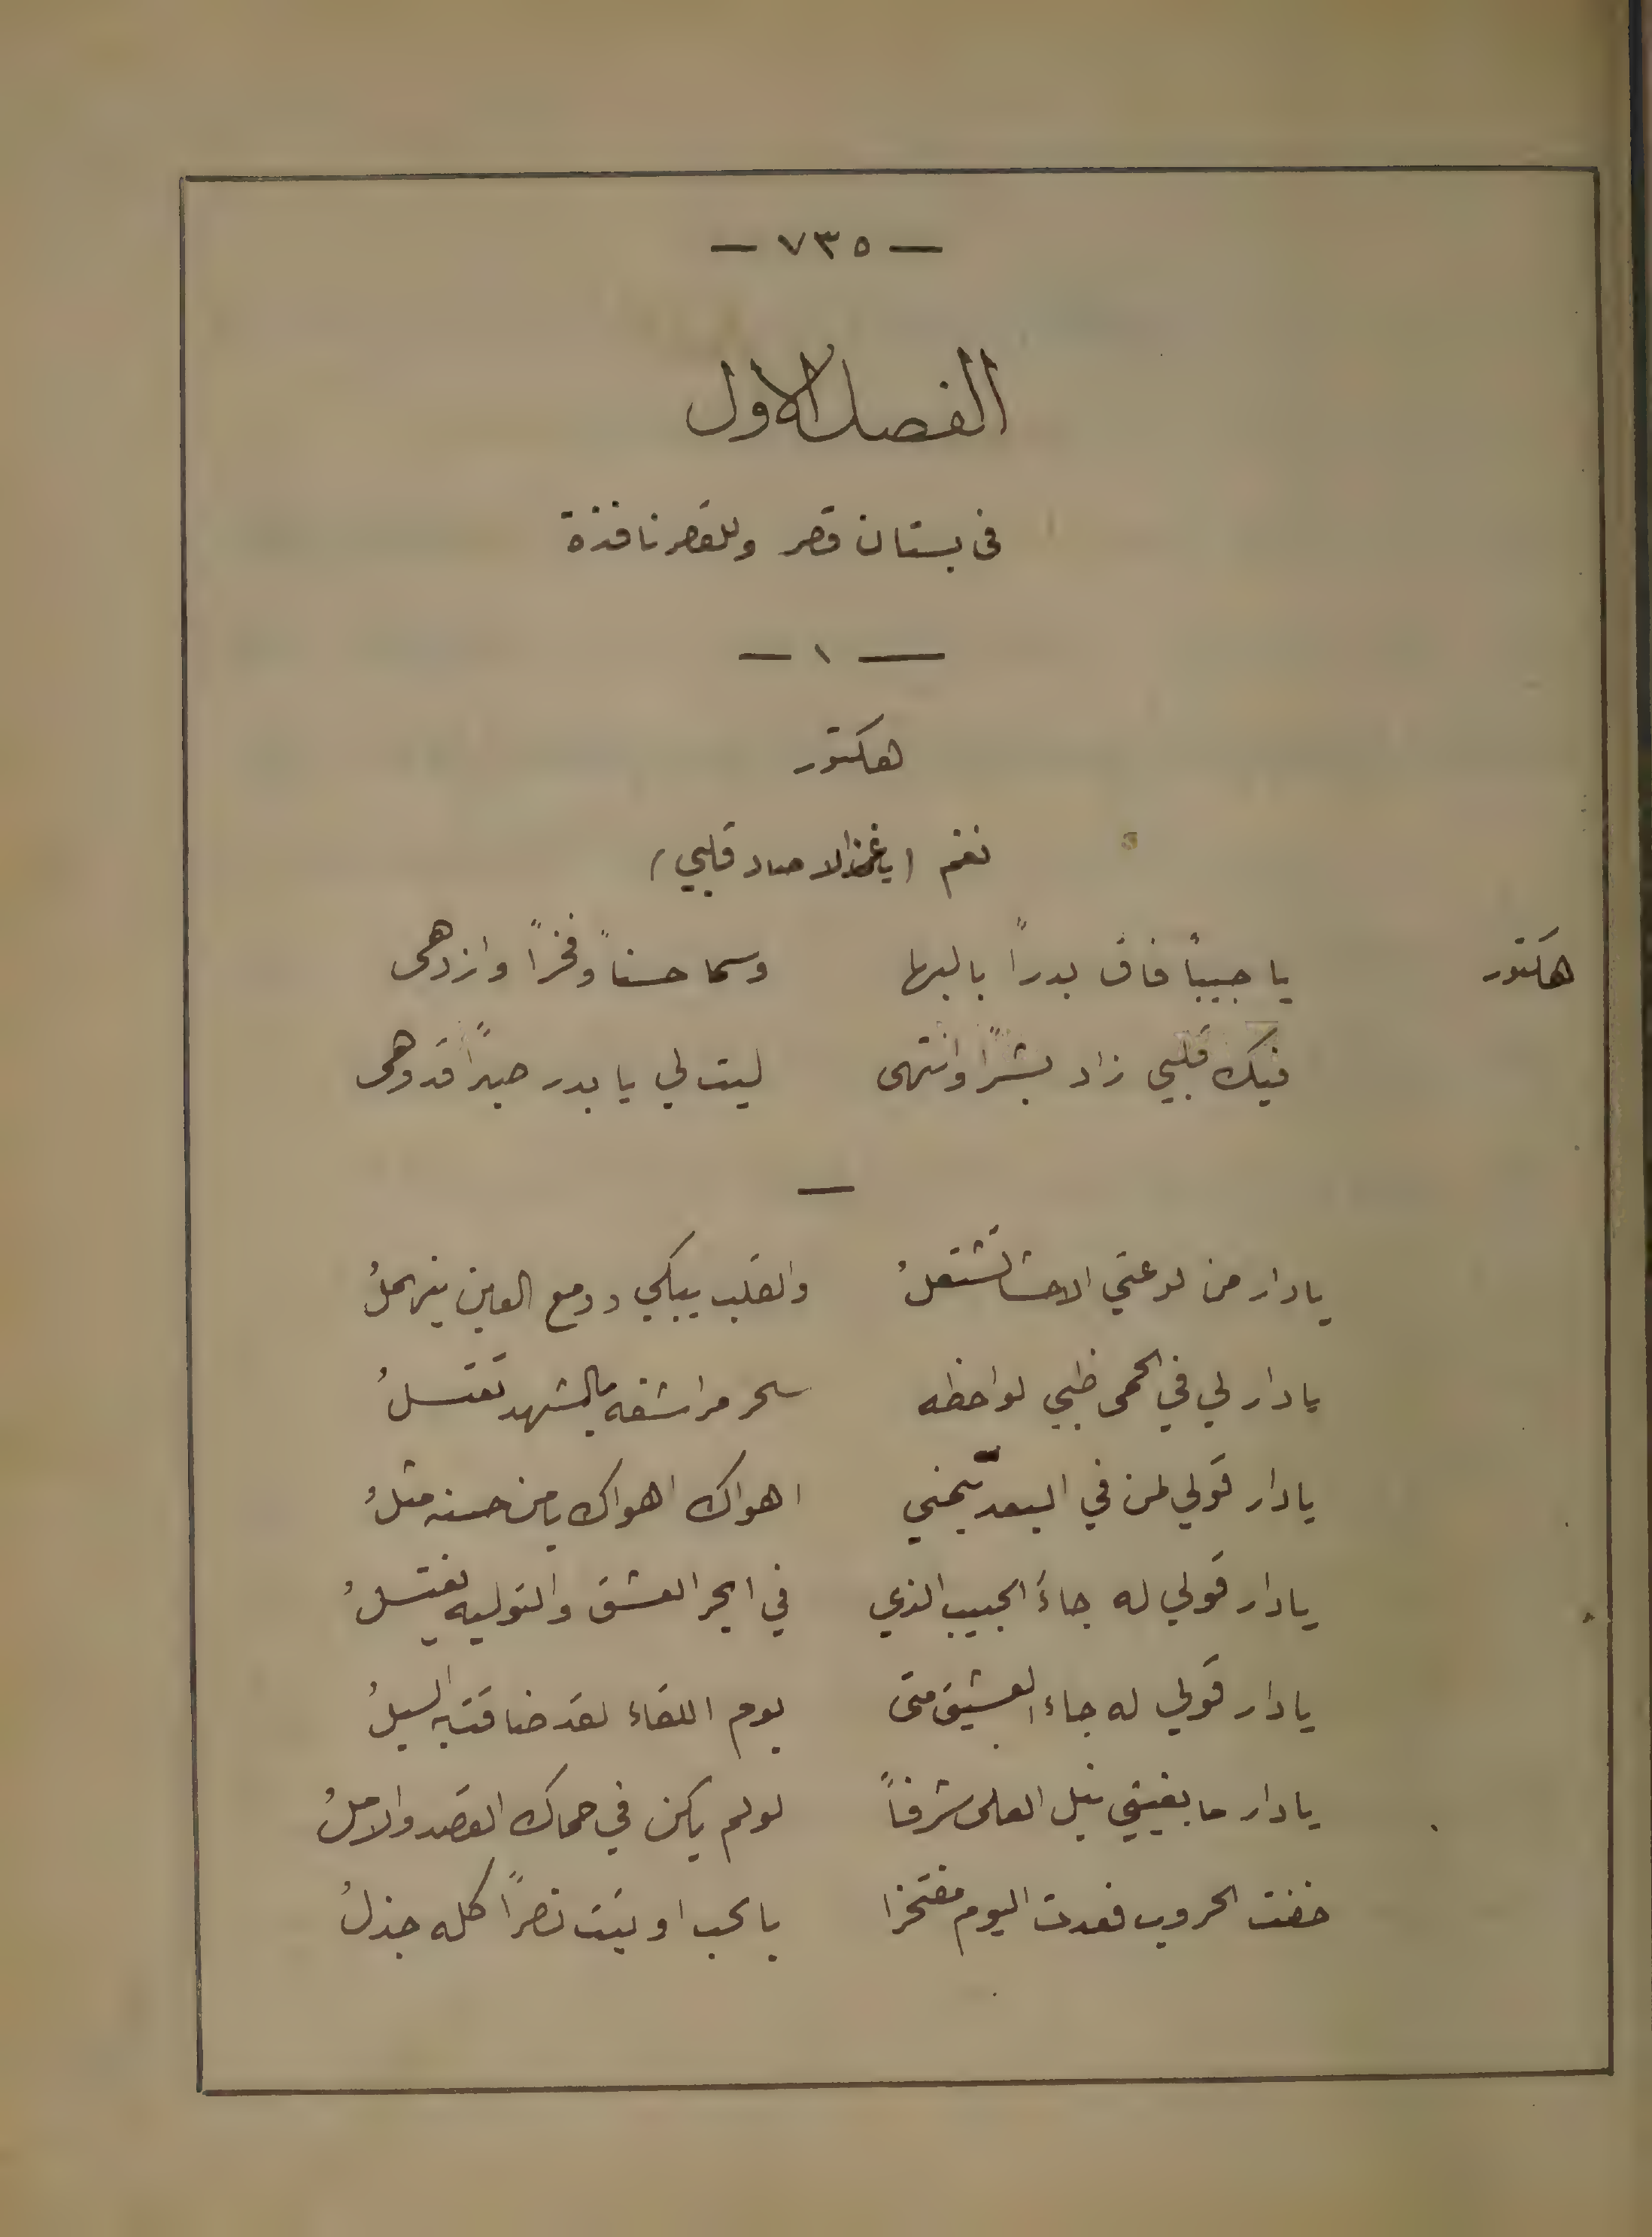 — ٧٣٥ —
الفصل الاول
فى بستان قصر وللقصر نافذة
— ١ —
هكتور
نغم (يا غزالا صاد قلبي)
هكتور يا حبيباً فاق بدراً بالبها وسما حسناً وفخراً وازدهى
فيك قلبي زاد بشراً وانتهى ليت لي يا بدر صبراً قد وهى
—
يا دار من لوعتي الاحشا تشتعلُ والقلب يبكي ودمع العين ينهملُ
يا دار لي في الحمى ظبي لواحظه سحر مراشفه بالشهد تغتسلُ
يا دار قولي لمن في البعد تيّمني اهواك اهواك يا من حسنه مثلُ
يا دار قولي له جاءَ الحبيب الذي في ابحر العشق والتوليه يغتسلُ
يا دار قولي له جاء العشيق متى يوم اللقاء لقد ضاقت به السبلُ
يا دار ما بغيتي نيل العلى شرفاً لو لم يكن في حماك القصد والاملُ
خفت الحروب فعدت اليوم مفتخرا بالحب اوتيت نصراً كله جذلُ